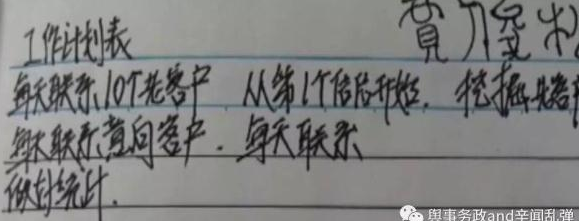 工作计划表
每天联系10个老客户 从第1个信后开始. 挖掘老客户
每天联系意向客户. 每天联系
做好统计.
舆事务政and辛闻乱弹